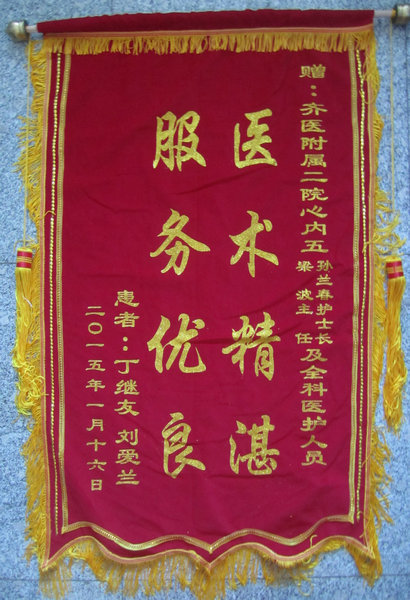 赠：齐医附属二院心内五
孙兰春护士长
梁波主任
及全科医护人员
医术精湛
服务优良
患者：丁继友 刘爱兰
二〇一五年一月十六日